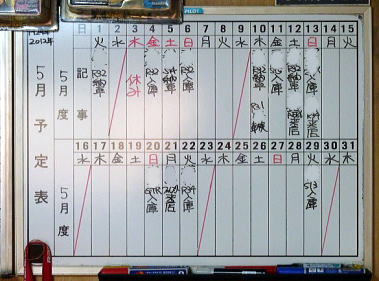 PILOT
2012年
5月予定表
日 1 2 3 4 5 6 7 8 9 10 11 12 13 14 15
5月度 記事
火 水 木 金 土 日 月 火 水 木 金 土 日 月 火
R32 納車
休み
R32 入庫
納車
R32 入庫
R32 納車
入庫
R31
来店
16 17 18 19 20 21 22 23 24 25 26 27 28 29 30 31
5月度
水 木 金 土 日 月 火 水 木 金 土 日 月 火 水 木
GTR 入庫
来店
R34 入庫
S13 入庫